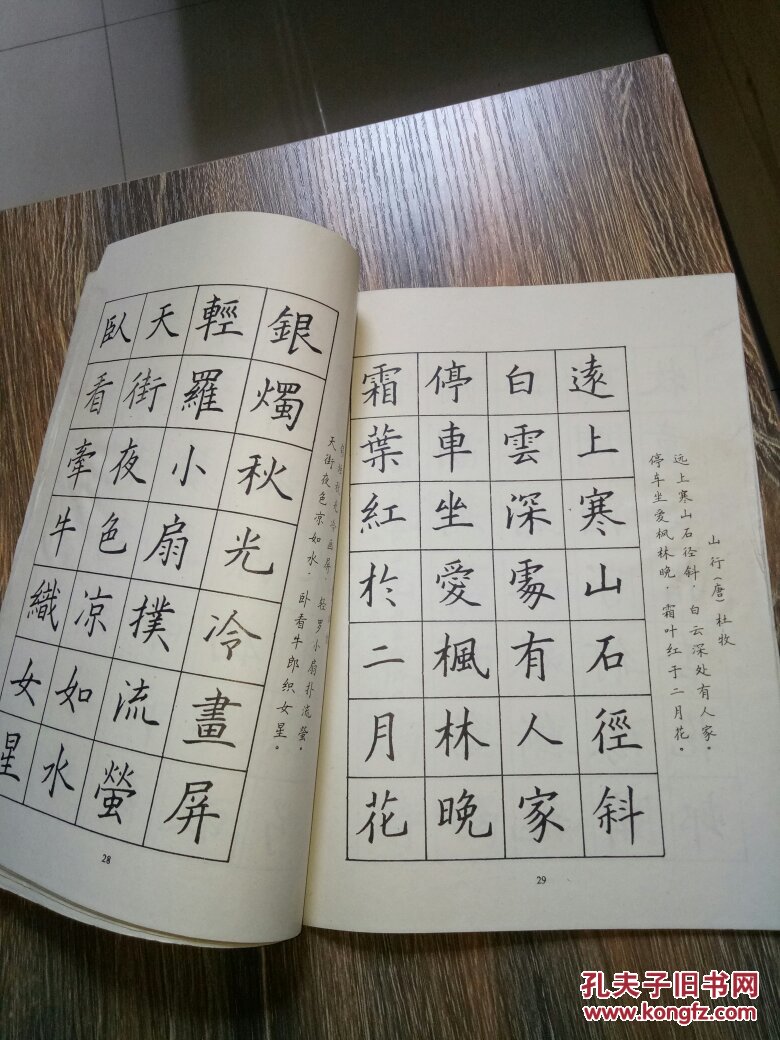 银烛秋光冷画屏，轻罗小扇扑流萤。
天街夜色凉如水，卧看牛郎织女星。
銀燭秋光冷畫屏
輕羅小扇撲流螢
天街夜色凉如水
臥看牽牛織女星
28
山行（唐）杜牧
远上寒山石径斜，白云深处有人家。
停车坐爱枫林晚，霜叶红于二月花。
遠上寒山石徑斜
白雲深處有人家
停車坐愛楓林晚
霜葉紅於二月花
29
孔夫子旧书网
www.kongfz.com